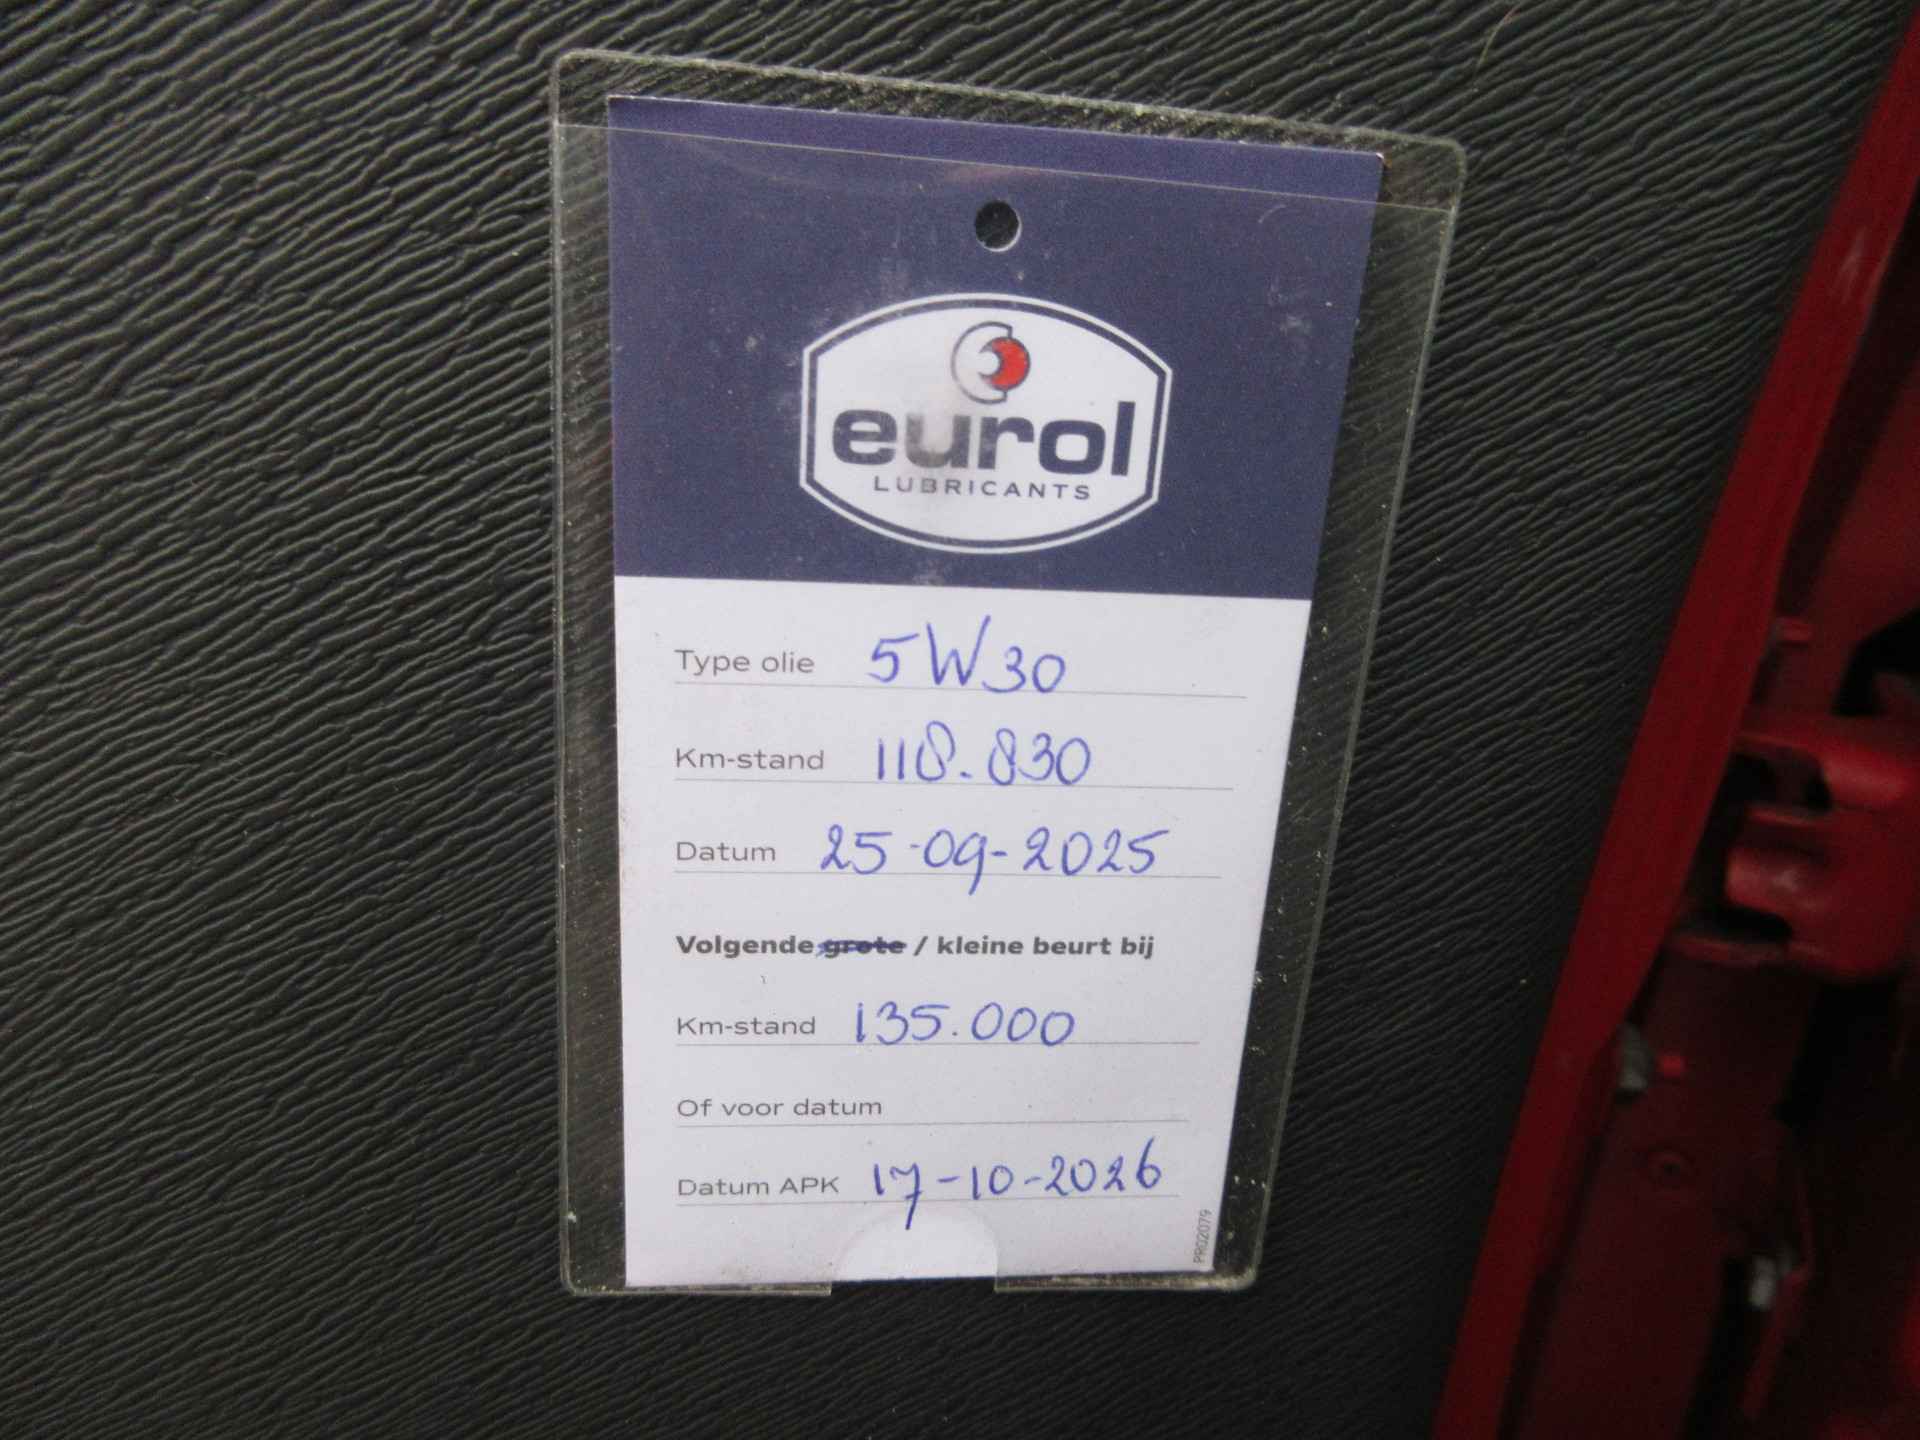 eurol
LUBRICANTS
Type olie 5W30
Km-stand 118.830
Datum 25-09-2025
Volgende grote / kleine beurt bij
Km-stand 135.000
Of voor datum
Datum APK 17-10-2026
PR02079